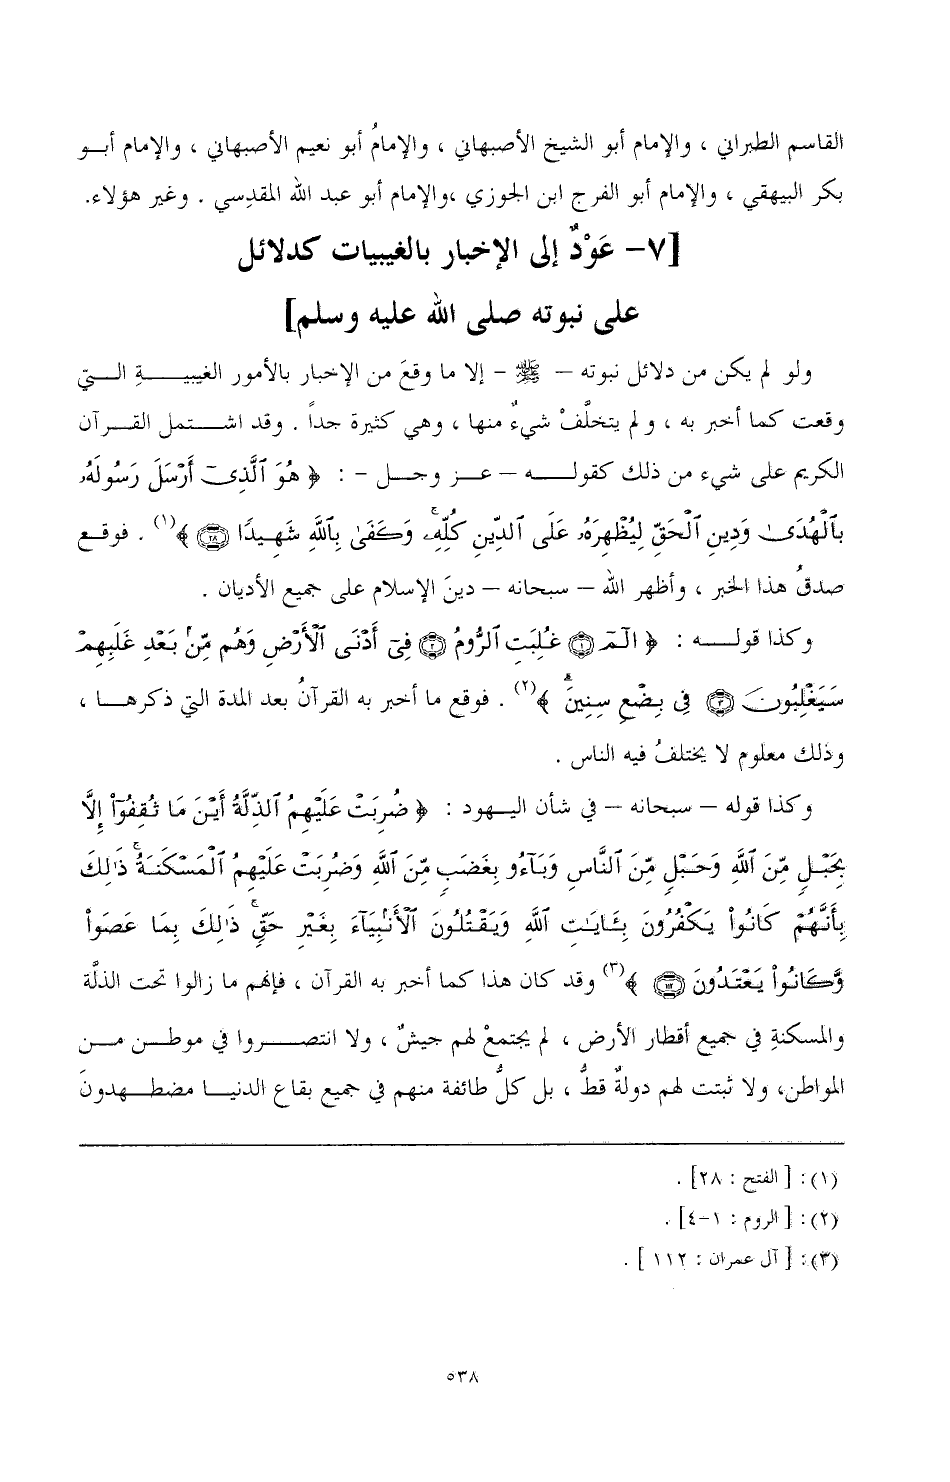 القاسم الطبراني ، والإمام أبو الشيخ الأصبهاني ، والإمامُ أبو نعيم الأصبهاني ، والإمام أبو
بكر البيهقي ، والإمام أبو الفرج ابن الجوزي ،والإمام أبو عبد الله المقدسي . وغير هؤلاء.
[٧- عَوْدٌ إلى الإخبار بالغيبيات كدلائل
على نبوته صلى الله عليه وسلم]
ولو لم يكن من دلائل نبوته – ﷺ – إلا ما وقعَ من الإخبار بالأمور الغيبيةِ التي
وقعت كما أخبر به ، و لم يتخلَّفْ شيءٌ منها ، وهي كثيرة جداً . وقد اشتمل القرآن
الكريم على شيء من ذلك كقوله – عز وجل - : ﴿ هُوَ ٱلَّذِىٓ أَرْسَلَ رَسُولَهُۥ
بِٱلْهُدَىٰ وَدِينِ ٱلْحَقِّ لِيُظْهِرَهُۥ عَلَى ٱلدِّينِ كُلِّهِۦۚ وَكَفَىٰ بِٱللَّهِ شَهِيدًا ۝٢٨ ﴾(١) . فوقع
صدقُ هذا الخبر ، وأظهر الله – سبحانه – دينَ الإسلام على جميع الأديان .
وكذا قوله : ﴿ الٓمٓ ۝١ غُلِبَتِ ٱلرُّومُ ۝٢ فِىٓ أَدْنَى ٱلْأَرْضِ وَهُم مِّنۢ بَعْدِ غَلَبِهِمْ
سَيَغْلِبُونَ ۝٣ فِى بِضْعِ سِنِينَۗ ﴾(٢) . فوقع ما أخبر به القرآنُ بعد المدة التي ذكرها ،
وذلك معلوم لا يختلفُ فيه الناس .
وكذا قوله – سبحانه – في شأن اليهود : ﴿ ضُرِبَتْ عَلَيْهِمُ ٱلذِّلَّةُ أَيْنَ مَا ثُقِفُوٓا۟ إِلَّا
بِحَبْلٍ مِّنَ ٱللَّهِ وَحَبْلٍ مِّنَ ٱلنَّاسِ وَبَآءُو بِغَضَبٍ مِّنَ ٱللَّهِ وَضُرِبَتْ عَلَيْهِمُ ٱلْمَسْكَنَةُۚ ذَٰلِكَ
بِأَنَّهُمْ كَانُوا۟ يَكْفُرُونَ بِـَٔايَٰتِ ٱللَّهِ وَيَقْتُلُونَ ٱلْأَنۢبِيَآءَ بِغَيْرِ حَقٍّۚ ذَٰلِكَ بِمَا عَصَوا۟
وَّكَانُوا۟ يَعْتَدُونَ ۝١١٢ ﴾(٣) وقد كان هذا كما أخبر به القرآن ، فإنهم ما زالوا تحت الذلَّة
والمسكنةِ في جميع أقطار الأرض ، لم يجتمعْ لهم جيشٌ ، ولا انتصروا في موطن من
المواطن، ولا ثبتت لهم دولةٌ قطُّ ، بل كلُّ طائفة منهم في جميع بقاع الدنيا مضطهدونَ
(١): [ الفتح : ٢٨] .
(٢): [ الروم : ١-٤] .
(٣): [ آل عمران : ١١٢ ] .
٥٣٨